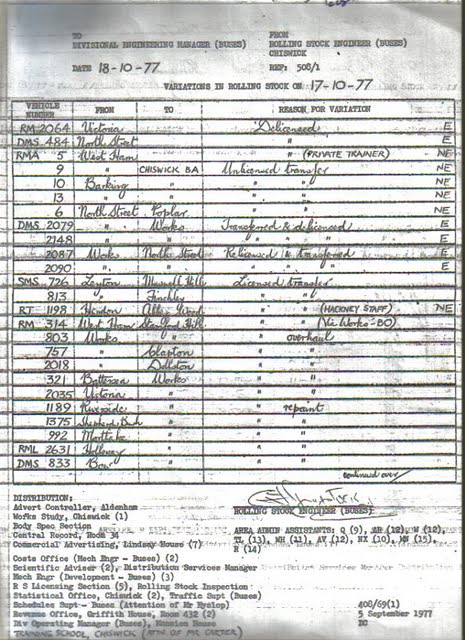 TO FROM
DIVISIONAL ENGINEERING MANAGER (BUSES) ROLLING STOCK ENGINEER (BUSES)
CHISWICK
DATE 18-10-77 REF: 508/1
VARIATIONS IN ROLLING STOCK ON 17-10-77
VEHICLE NUMBER FROM TO REASON FOR VARIATION
RM 2064 Victoria Delicensed E
DMS 484 North Street " E
RMA 5 West Ham " (PRIVATE TRAINER) NE
9 " CHISWICK BA Unlicensed transfer NE
10 Barking " " " NE
13 " " " " NE
6 North Street Poplar " " NE
DMS 2079 " Works Transferred & delicensed E
2148 " " " " E
2087 Works North Street Relicensed & transferred E
2090 " " " " E
SMS 726 Leyton Muswell Hill Licensed transfer
813 " Finchley " "
RT 1198 Hendon " " (HACKNEY STAFF) NE
RM 314 West Ham Stamford Hill " " (Via Works-BO)
803 Works " " overhaul
757 " Clapton " "
2018 " Dalston " "
321 Battersea Works " "
2035 Victoria " " "
1189 Riverside " " repaint
1375 Shepherd's Bush " " "
992 Mortlake " " "
RML 2631 Holloway " " "
DMS 833 Bow " " "
continued over
DISTRIBUTION:
Advert Controller, Aldenham ROLLING STOCK ENGINEER (BUSES)
Works Study, Chiswick (1)
Body Spec Section AREA ADMIN ASSISTANTS: Q (9), AR (12), W (12),
Central Record, Room 34 TL (13), WH (11), AV (12), NX (10), WN (15),
Commercial Advertising, Lindsay House (7) R (14)
Costs Office (Mech Engr - Buses) (2)
Scientific Adviser (2), Distribution Services Manager
Mech Engr (Development - Buses) (3)
R S Licensing Section (5), Rolling Stock Inspection
Statistical Office, Chiswick (2), Traffic Supt (Buses)
Schedules Supt - Buses (Attention of Mr Hyslop) 408/69(1)
Revenue Office, Griffith House, Room 432 (2) 5 September 1977
Div Operating Manager (Buses), Mansion House BC
TRAINING SCHOOL, CHISWICK (ATTN OF MR CARTER)